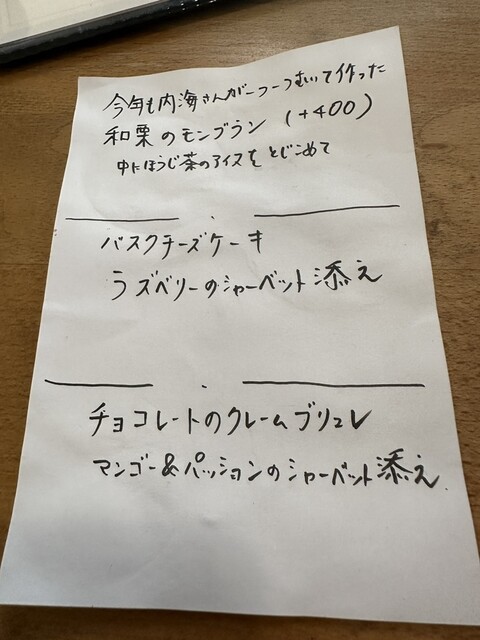 今年も内海さんが一つ一つむいて作った
和栗のモンブラン (+400)
中にほうじ茶のアイスをとじこめて
バスクチーズケーキ
ラズベリーのシャーベット添え
チョコレートのクレームブリュレ
マンゴー&パッションのシャーベット添え